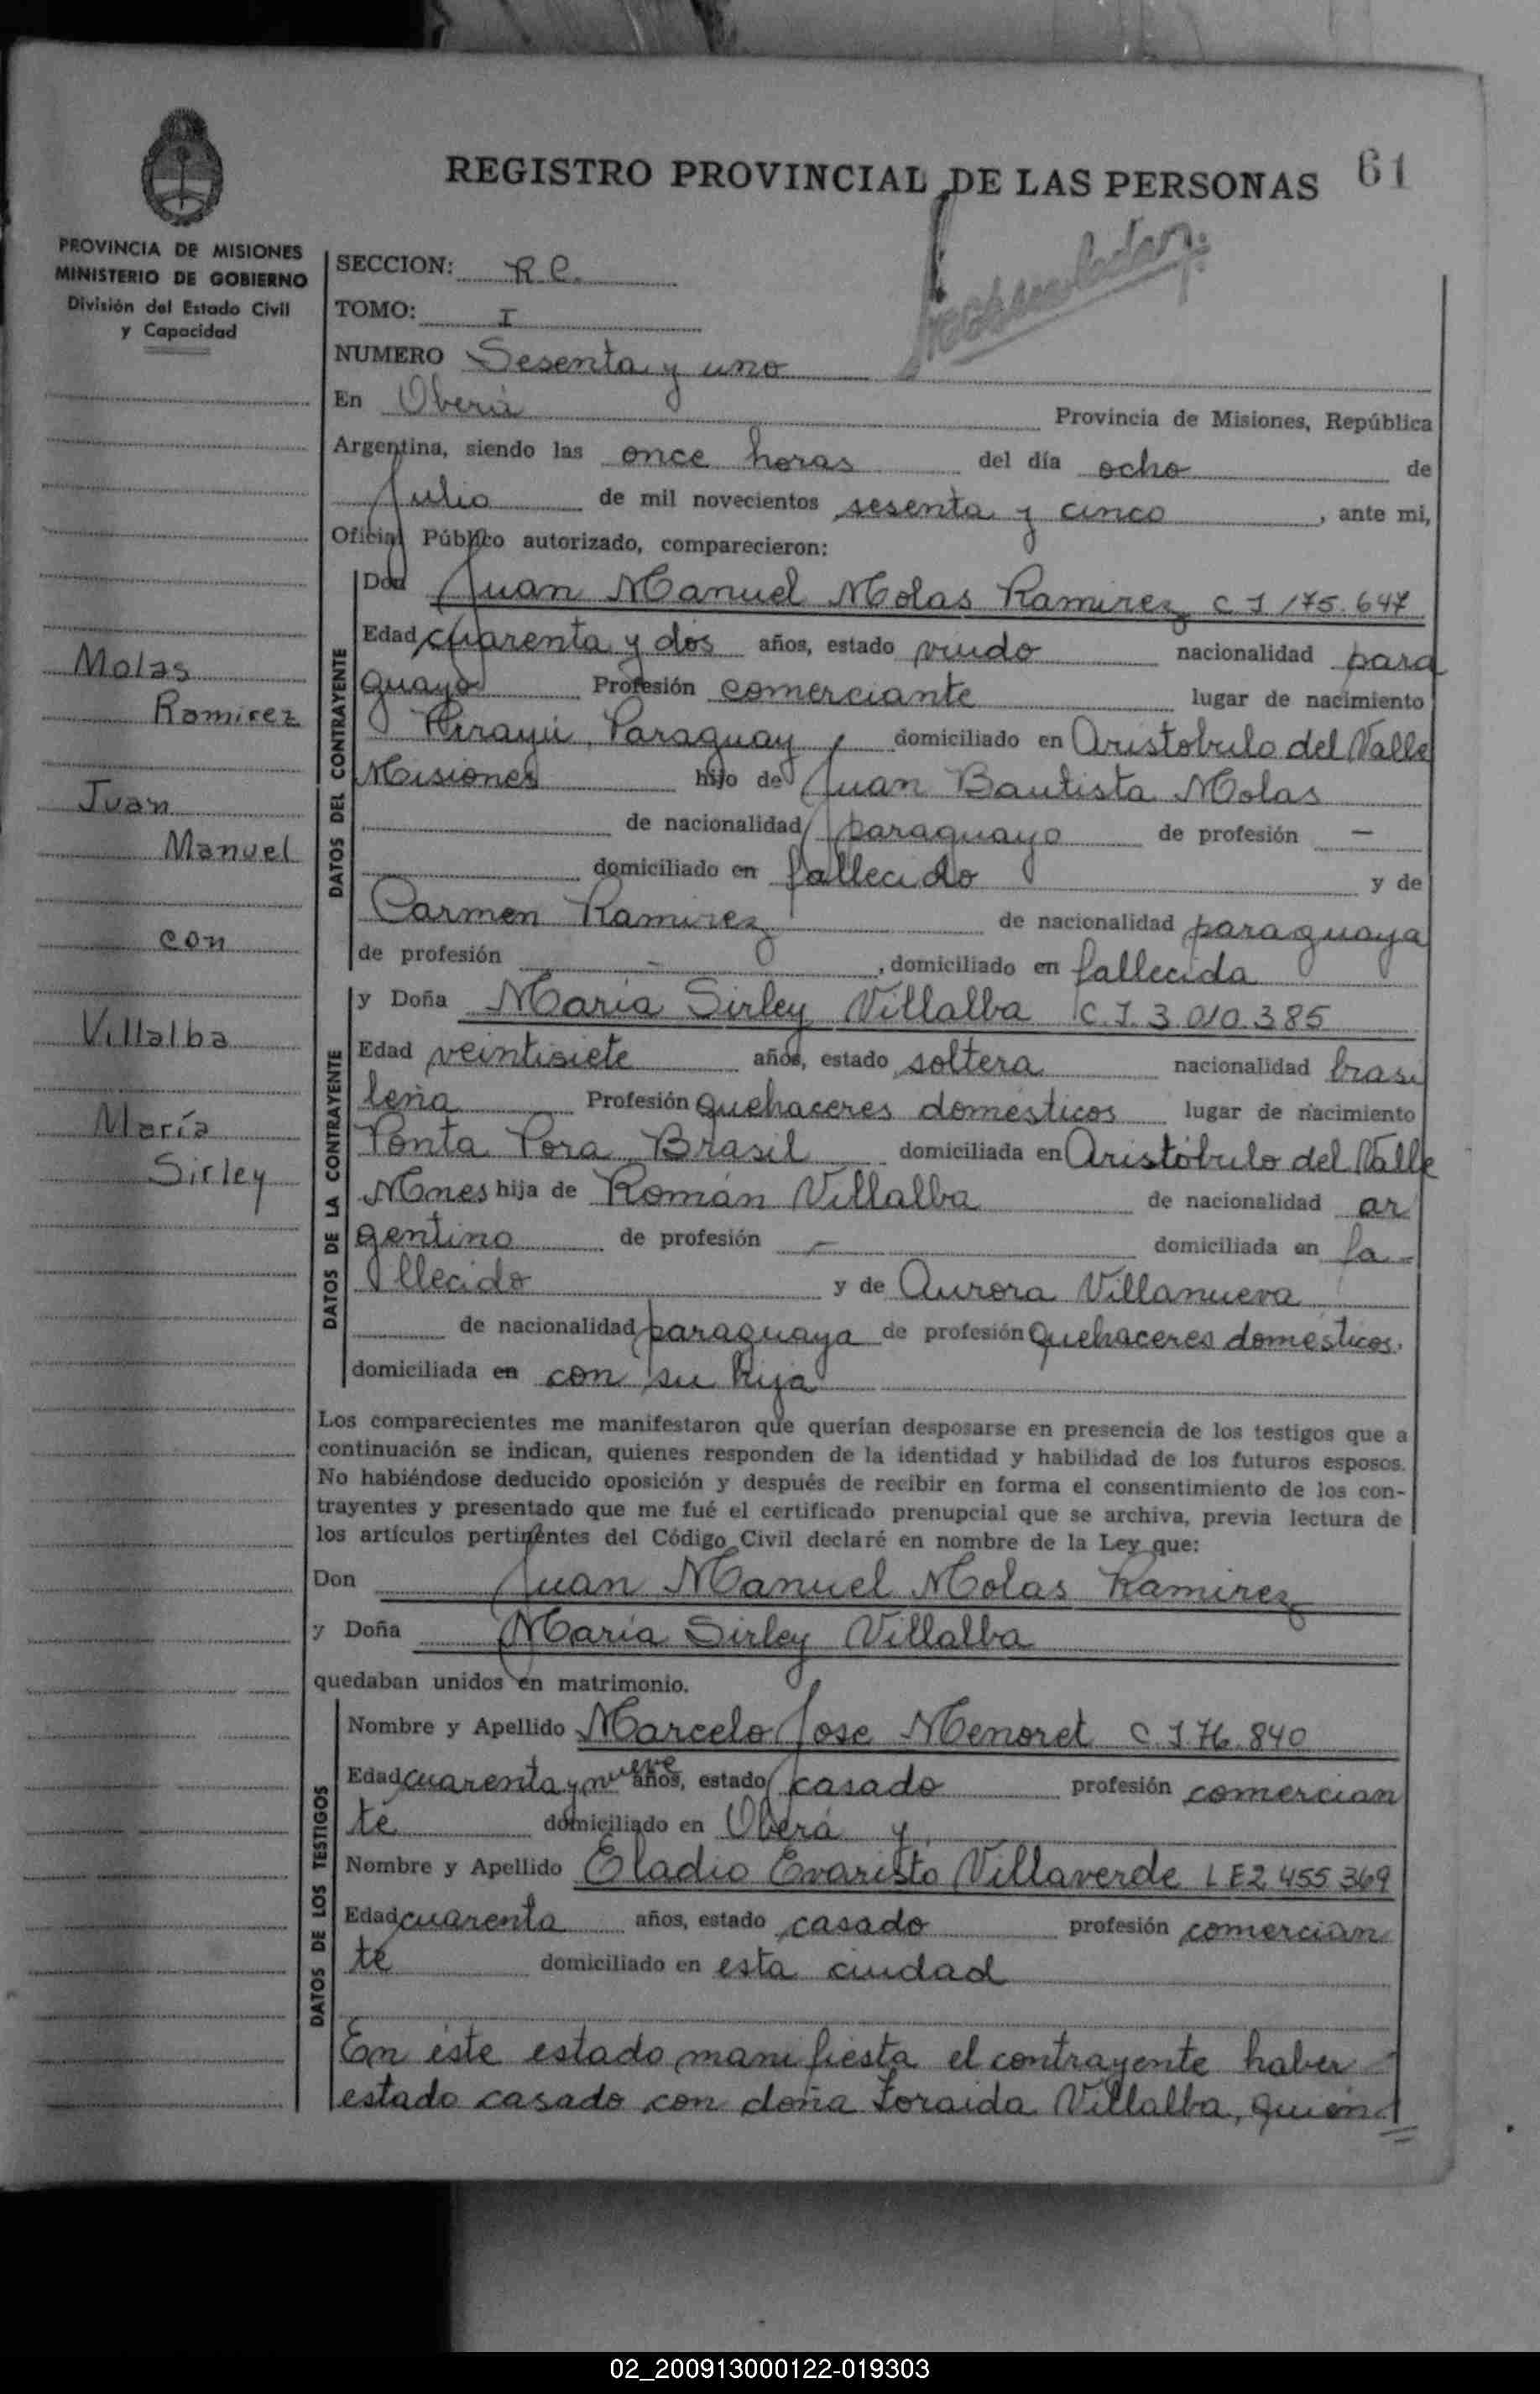 REGISTRO PROVINCIAL DE LAS PERSONAS 61
PROVINCIA DE MISIONES
MINISTERIO DE GOBIERNO
División del Estado Civil
y Capacidad
Molas
Ramirez
Juan
Manuel
con
Villalba
María
Sirley
SECCION: R.C.
TOMO: I
NUMERO Sesenta y uno
En Oberá Provincia de Misiones, República
Argentina, siendo las once horas del día ocho de
Julio de mil novecientos sesenta y cinco, ante mi,
Oficial Público autorizado, comparecieron:
DATOS DEL CONTRAYENTE
Don Juan Manuel Molas Ramirez C I 175.647
Edad cuarenta y dos años, estado viudo nacionalidad para
guayo Profesión comerciante lugar de nacimiento
Pirayú, Paraguay, domiciliado en Aristobulo del Valle
Misiones hijo de Juan Bautista Molas
de nacionalidad paraguayo de profesión —
domiciliado en fallecido y de
Carmen Ramirez de nacionalidad paraguaya
de profesión -, domiciliado en fallecida
DATOS DE LA CONTRAYENTE
y Doña María Sirley Villalba C.I. 3.010.385
Edad veintisiete años, estado soltera nacionalidad brasi
leña Profesión quehaceres domésticos lugar de nacimiento
Ponta Pora Brasil domiciliada en Aristóbulo del Valle
Mnes hija de Román Villalba de nacionalidad ar
gentino de profesión — domiciliada en fa-
llecido y de Aurora Villanueva
de nacionalidad paraguaya de profesión quehaceres domésticos.
domiciliada en con su hija
Los comparecientes me manifestaron que querían desposarse en presencia de los testigos que a
continuación se indican, quienes responden de la identidad y habilidad de los futuros esposos.
No habiéndose deducido oposición y después de recibir en forma el consentimiento de los con-
trayentes y presentado que me fué el certificado prenupcial que se archiva, previa lectura de
los artículos pertinentes del Código Civil declaré en nombre de la Ley que:
Don Juan Manuel Molas Ramirez
y Doña María Sirley Villalba
quedaban unidos en matrimonio.
DATOS DE LOS TESTIGOS
Nombre y Apellido Marcelo Jose Menoret C.I. 76.840
Edad cuarenta y nueve años, estado casado profesión comercian
te domiciliado en Oberá y
Nombre y Apellido Eladio Evaristo Villaverde LE 2 455 369
Edad cuarenta años, estado casado profesión comercian
te domiciliado en esta ciudad
En este estado manifiesta el contrayente haber
estado casado con doña Zoraida Villalba, quien
02_200913000122-019303